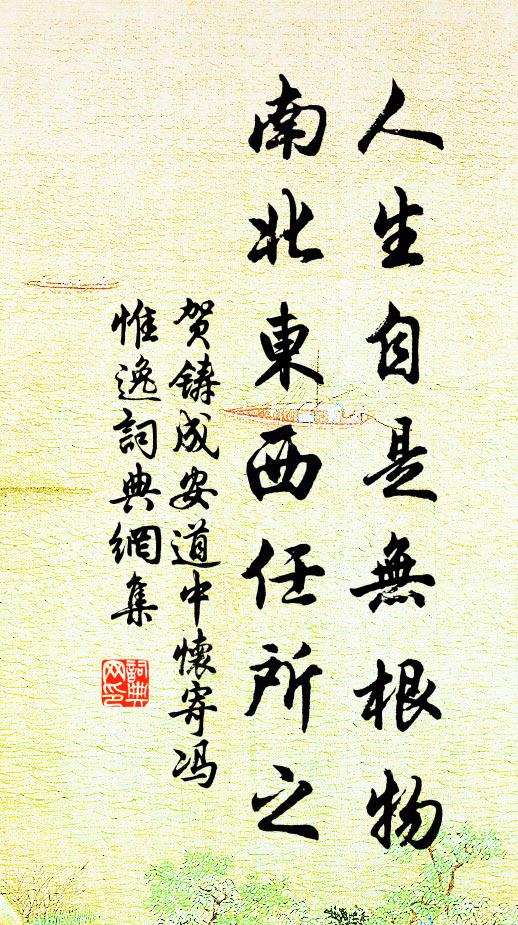 人生自是無根物
南北東西任所之
贺鑄成安道中懷寄冯
惟逸詞典網集
詞典网印